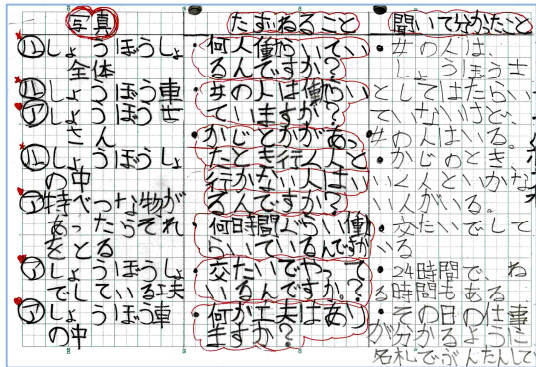 写真
しょうぼうしょ
全体
しょうぼう車
しょうぼう士
さん
しょうぼうしょ
の中
特べつな物が
あったらそれ
をとる
しょうぼうしょ
でしている工夫
しょうぼう車
の中
たずねること
・何人働らいてい
るんですか?
・女の人は働らい
ていますか?
・かじとかがあっ
たとき行く人と
行かない人はい
るんですか?
・何日時間ぐらい働
らいているんですか
・交たいでやって
いるんですか。?
・何か工夫はあり
ますか?
聞いて分かったこと
・女の人は、
しょうぼう士
としてはたらい
ていないけど、
女の人はいる。
・かじのとき、
いく人といかな
い人がいる。
・交たいでして
いる
・24時間で、ね
る時間もある
・その日の仕事
が分かるように
名札でぶんたんして